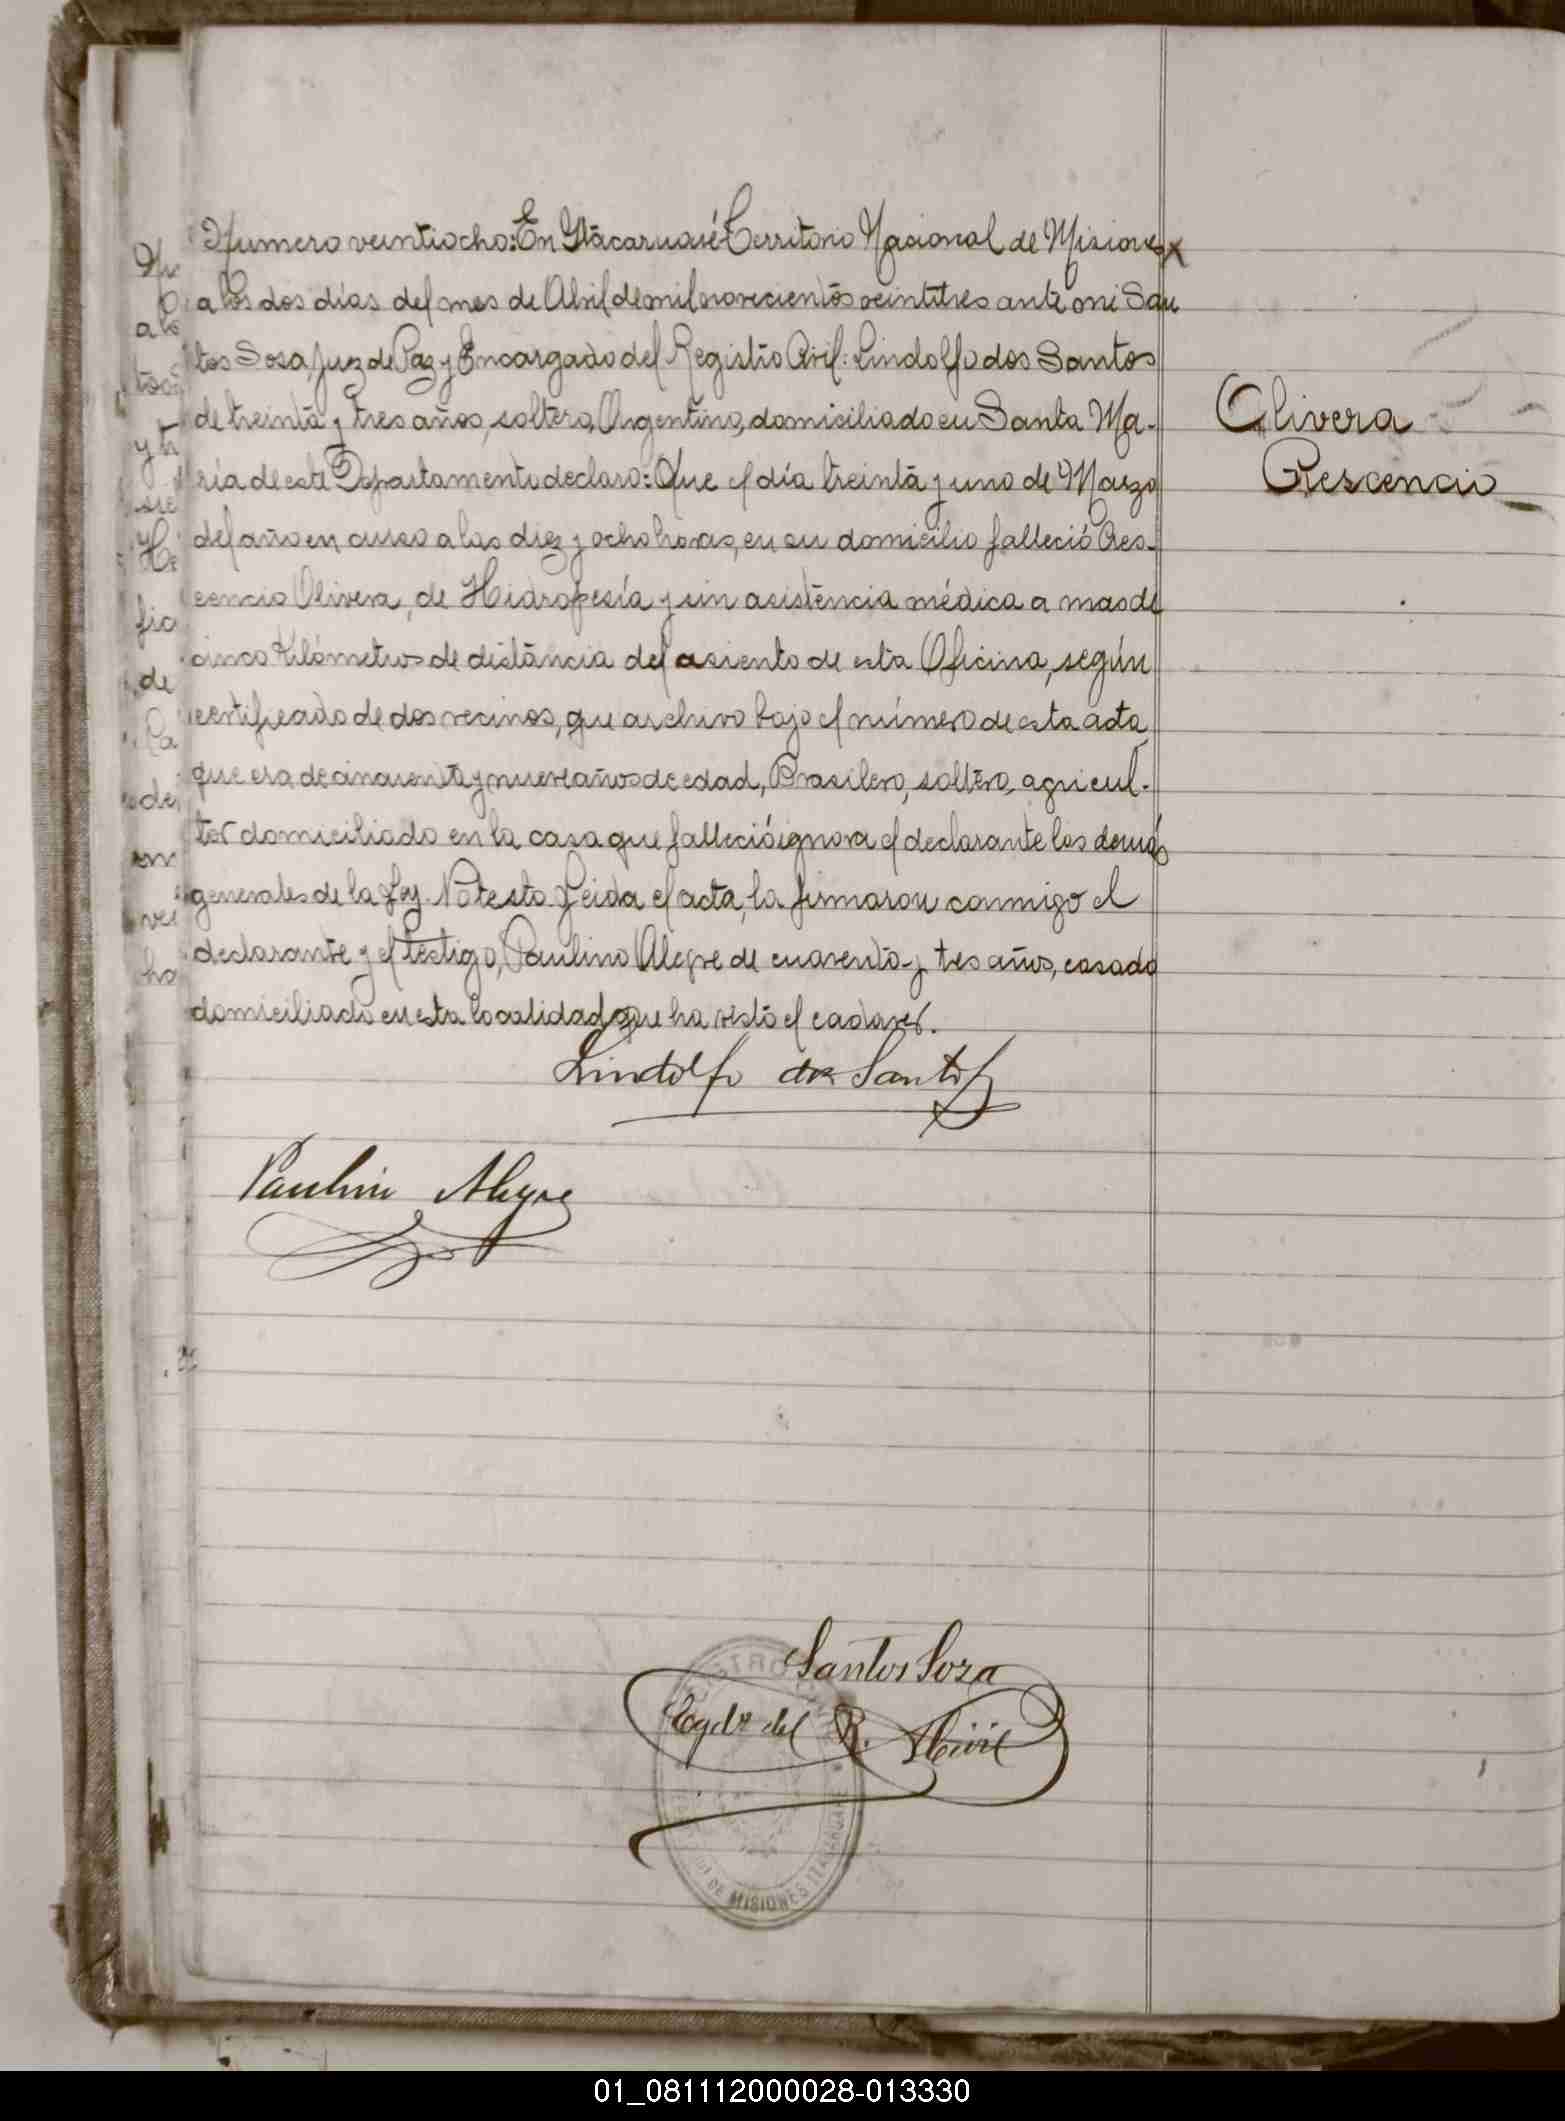 Numero veintiocho: En Ytacaruaré Territorio Nacional de Misiones
a los dos días del mes de Abril de mil novecientos veintitres ante mi San
tos Sosa, Juez de Paz y Encargado del Registro Civil: Lindolfo dos Santos
de treinta y tres años, soltero, Argentino, domiciliado en Santa Ma-
ría de este Departamento declaro: Que el día treinta y uno de Marzo
del año en curso a las diez y ocho horas, en su domicilio falleció Cres-
cencio Olivera, de Hidropesía y sin asistencia médica a mas de
cinco Kilómetros de distancia del asiento de esta Oficina, según
certificado de dos vecinos, que archivo bajo el número de esta acta,
que era de cincuenta y nueve años de edad, Brasilero, soltero, agricul-
tor domiciliado en la casa que falleció ignora el declarante las demás
generales de la Ley. No testo. Leida el acta, la firmaron conmigo el
declarante y el testigo, Paulino Alegre de cuarenta y tres años, casado
domiciliado en esta localidad que ha visto el cadaver.
Olivera
Crescencio
Lindolfo dos Santos
Paulino Alegre
Santos Sosa
Egdo del R. Civil
DE MISIONES ITACARUARE
01_081112000028-013330